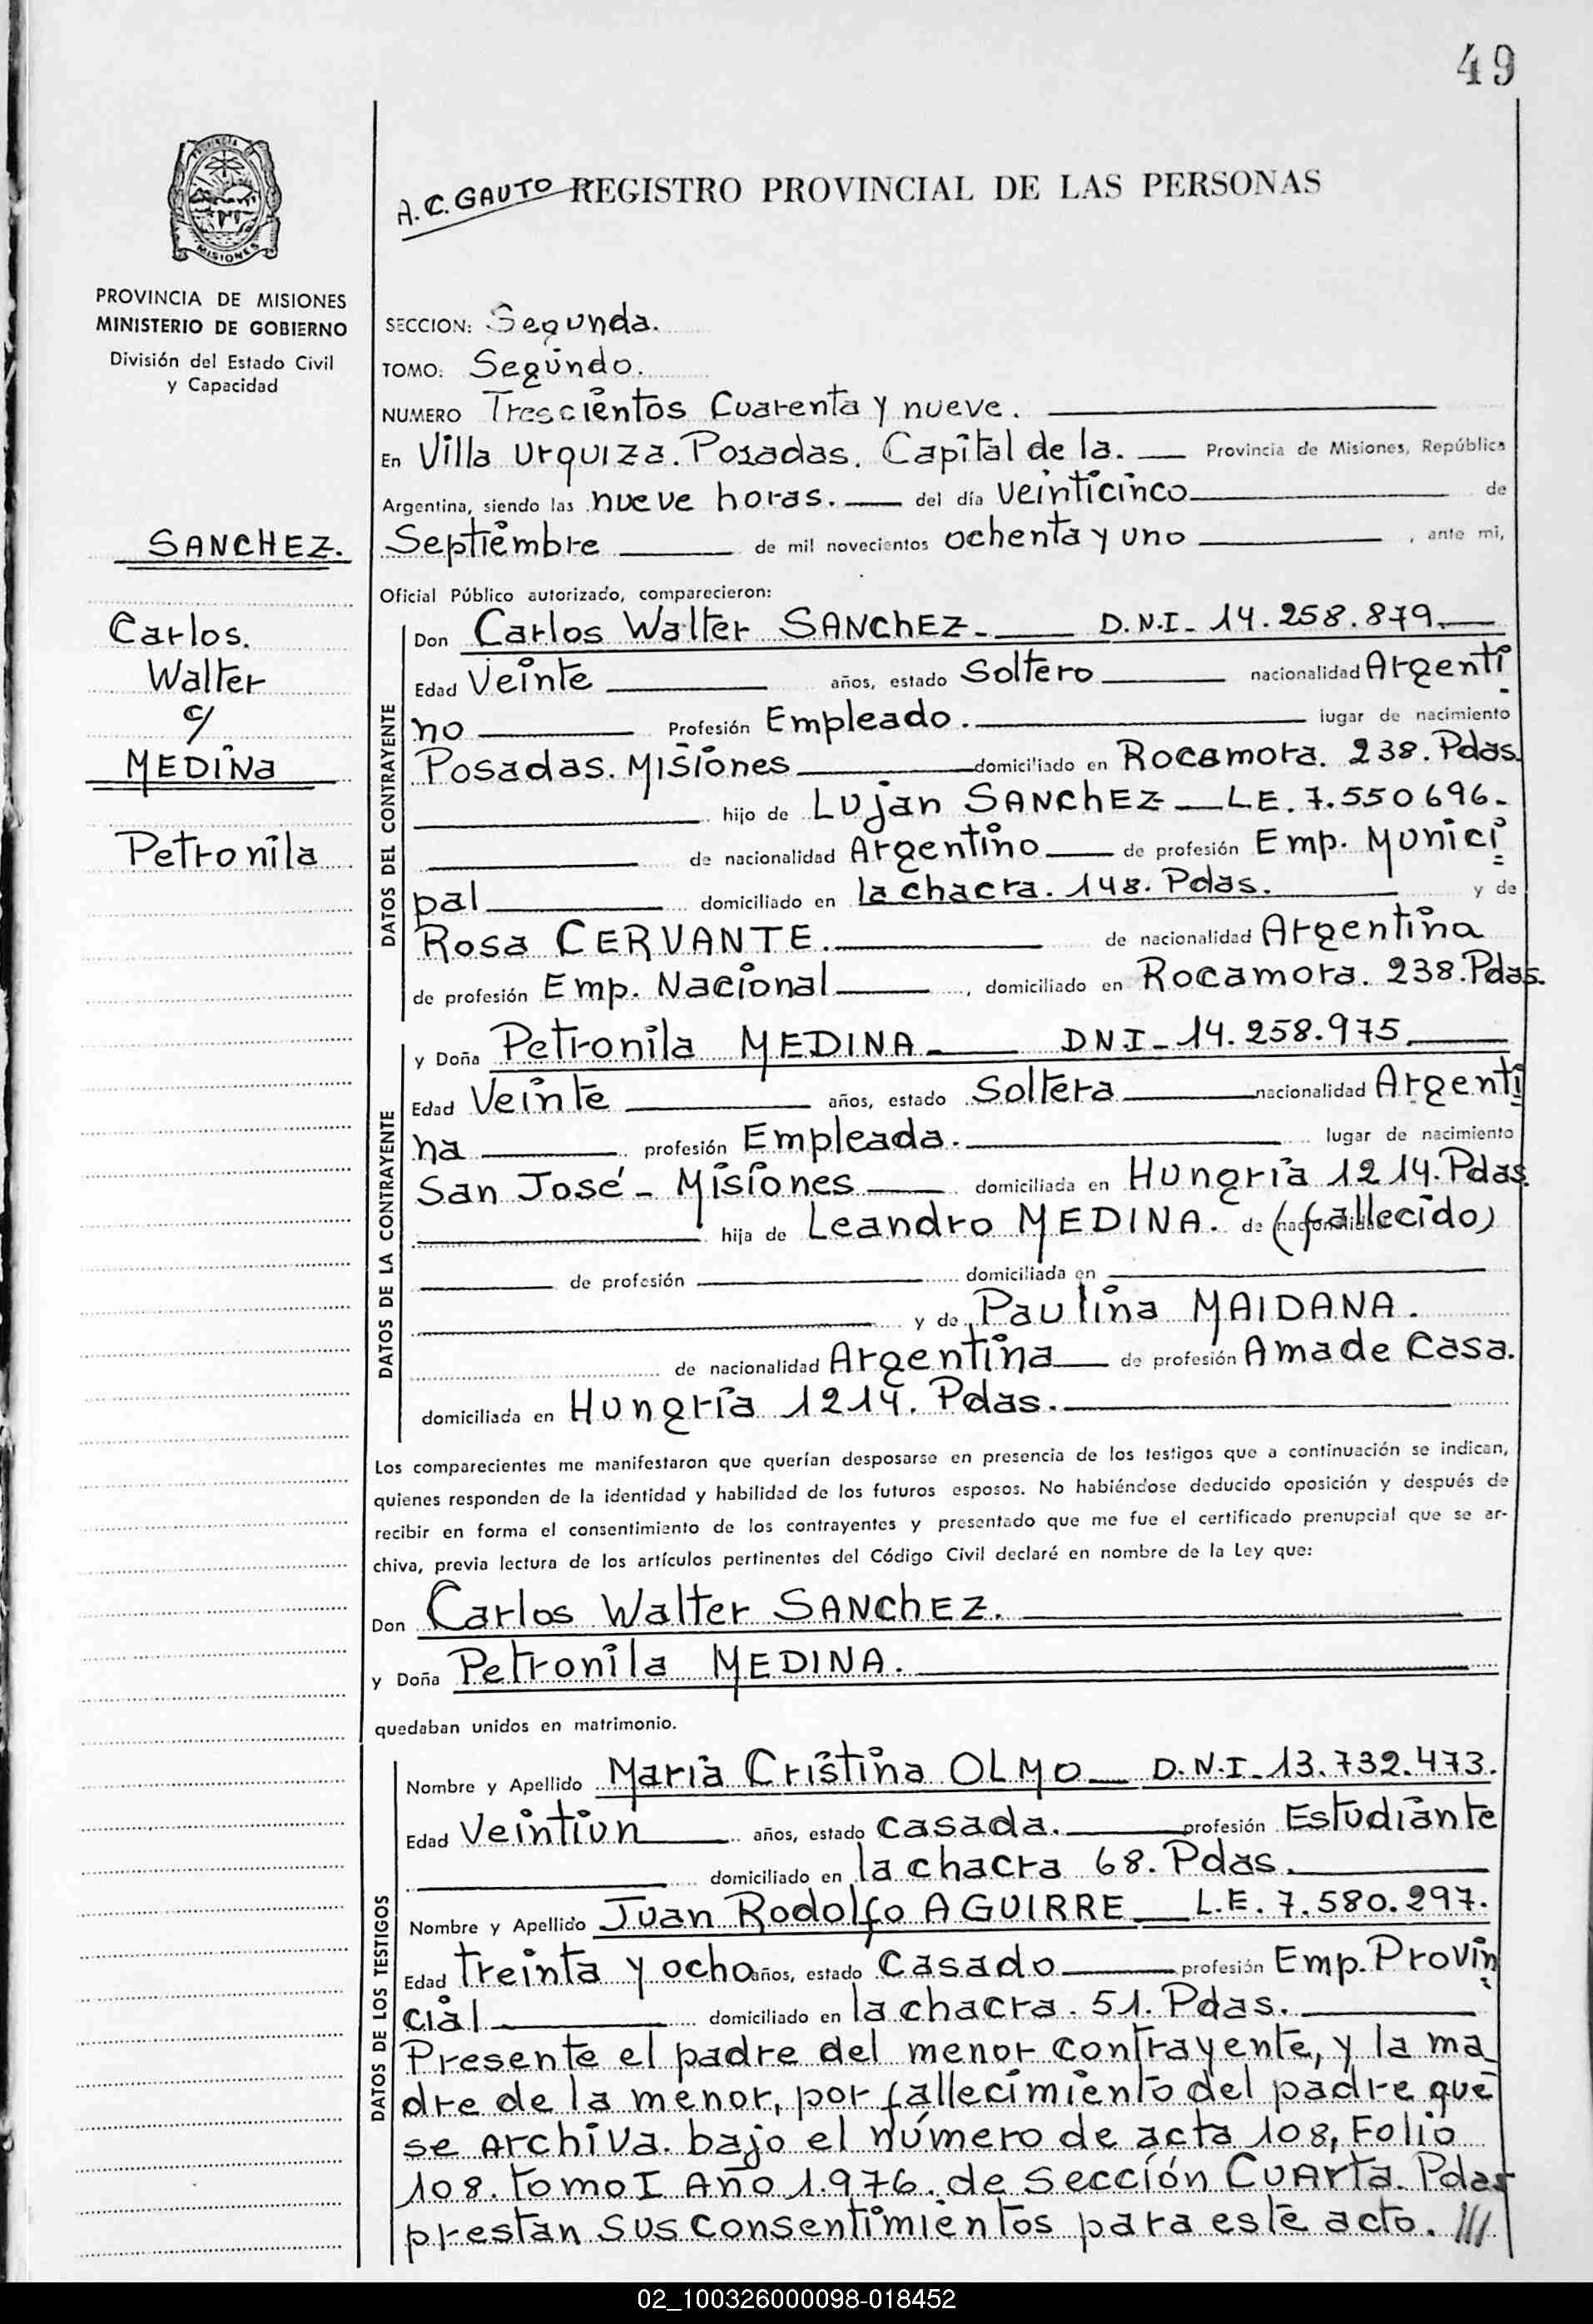 49
PROVINCIA DE MISIONES
A.C. GAUTO REGISTRO PROVINCIAL DE LAS PERSONAS
PROVINCIA DE MISIONES
MINISTERIO DE GOBIERNO
División del Estado Civil
y Capacidad
SANCHEZ.
Carlos.
Walter
c/
MEDINA
Petronila
SECCION: Segunda.
TOMO: Segundo.
NUMERO Trescientos Cuarenta y nueve.
En Villa Urquiza. Posadas. Capital de la. Provincia de Misiones, República
Argentina, siendo las nueve horas. del día Veinticinco de
Septiembre de mil novecientos ochenta y uno , ante mi,
Oficial Público autorizado, comparecieron:
DATOS DEL CONTRAYENTE
Don Carlos Walter SANCHEZ- D.N.I- 14.258.879.
Edad Veinte años, estado Soltero nacionalidad Argenti
no Profesión Empleado. lugar de nacimiento
Posadas. Misiones domiciliado en Rocamora. 238. Pdas.
hijo de Lujan SANCHEZ L.E. 7.550696-
de nacionalidad Argentino de profesión Emp. Munici
pal domiciliado en la chacra. 148. Pdas. y de
Rosa CERVANTE. de nacionalidad Argentina
de profesión Emp. Nacional , domiciliado en Rocamora. 238. Pdas.
DATOS DE LA CONTRAYENTE
y Doña Petronila MEDINA- DNI- 14.258.975.
Edad Veinte años, estado Soltera nacionalidad Argenti
na profesión Empleada. lugar de nacimiento
San José- Misiones domiciliada en Hungría 1214. Pdas.
hija de Leandro MEDINA. de nacionalidad (fallecido)
de profesión domiciliada en
y de Paulina MAIDANA.
de nacionalidad Argentina de profesión Ama de Casa.
domiciliada en Hungría 1214. Pdas.
Los comparecientes me manifestaron que querían desposarse en presencia de los testigos que a continuación se indican,
quienes responden de la identidad y habilidad de los futuros esposos. No habiéndose deducido oposición y después de
recibir en forma el consentimiento de los contrayentes y presentado que me fue el certificado prenupcial que se ar-
chiva, previa lectura de los artículos pertinentes del Código Civil declaré en nombre de la Ley que:
Don Carlos Walter SANCHEZ.
y Doña Petronila MEDINA.
quedaban unidos en matrimonio.
DATOS DE LOS TESTIGOS
Nombre y Apellido Maria Cristina OLMO D.N.I- 13.732.473.
Edad Veintiun años, estado casada. profesión Estudiante
domiciliado en la chacra 68. Pdas.
Nombre y Apellido Juan Rodolfo AGUIRRE L.E. 7.580.297.
Edad treinta y ocho años, estado casado profesión Emp. Provin
cial domiciliado en la chacra. 51. Pdas.
Presente el padre del menor contrayente, y la ma
dre de la menor, por fallecimiento del padre que
se archiva. bajo el número de acta 108, Folio
108. tomo I Año 1.976. de sección Cuarta. Pdas
prestan sus consentimientos para este acto. ///
02_100326000098-018452